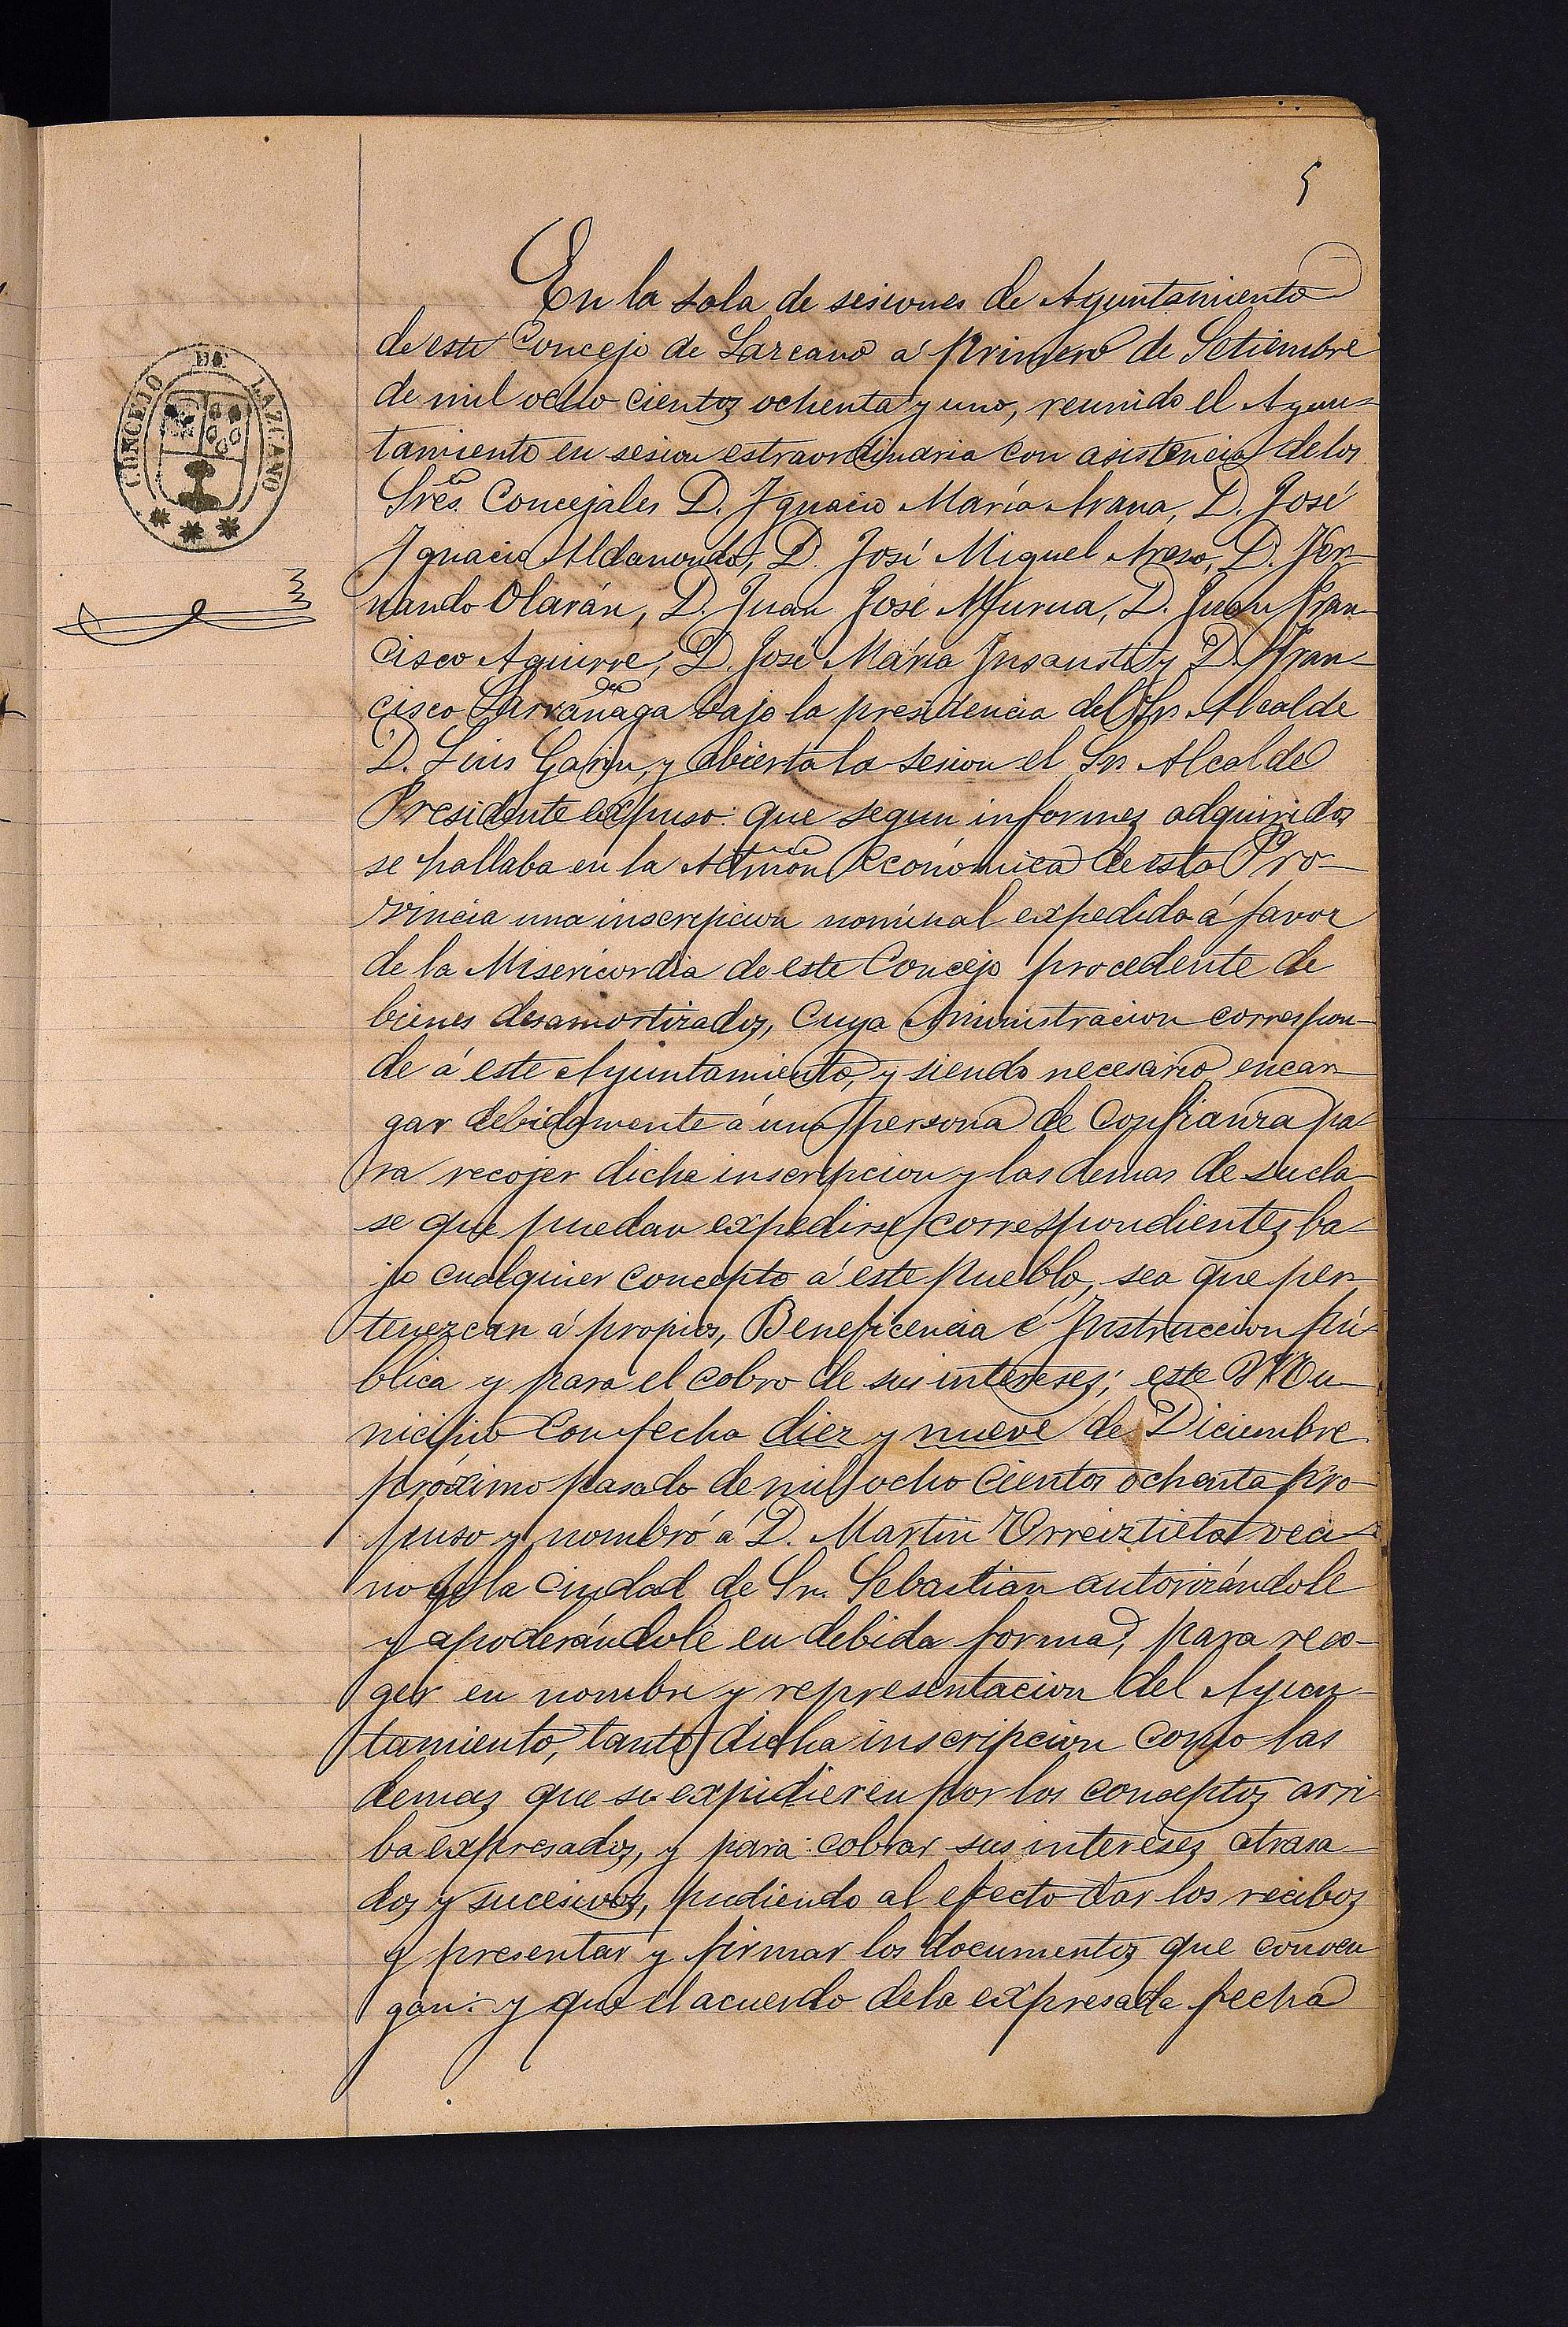 5
CONCEJO DE LAZCANO
En la sala de sesiones de Ayuntamiento
de este Concejo de Lazcano á primero de Setiembre
de mil ocho cientos ochenta y uno, reunido el Ayun-
tamiento en sesion estraordinaria con asistencia de los
Sres. Concejales D. Ignacio María Arana, D. José
Ignacio Aldanondo, D. José Miguel Areso, D. Fer-
nando Olarán, D. Juan José Murua, D. Juan Fran-
cisco Aguirre, D. José María Insausti y D. Fran-
cisco Larrañaga bajo la presidencia del Sr. Alcalde
D. Luis Garin, y abierta la sesion el Sr. Alcalde
Presidente expuso: que segun informes adquiridos
se hallaba en la Admon Económica de esta Pro-
vincia una inscripcion nominal expedida á favor
de la Misericordia de este Concejo procedente de
bienes desamortizados, cuya Aministracion correspon-
de á este Ayuntamiento, y siendo necesario encar-
gar debidamente á una persona de confianza pa-
ra recojer dicha inscripcion y las demas de su cla-
se que puedan expedirse correspondientes ba-
jo cualquier concepto á este pueblo, sea que per-
tenezcan á propios, Beneficencia é Instruccion pú-
blica y para el cobro de sus intereses; este Mu-
nicipio con fecha diez y nueve de Diciembre
próximo pasado de mil ocho cientos ochenta pro-
puso y nombró á D. Martin veci-
no de la Ciudad de Sn. Sebastian autorizándole
y apoderándole en debida forma, para reco-
ger en nombre y representacion del Ayun-
tamiento, tanto dicha inscripcion como las
demas que se expidieren por los conceptos arri-
ba expresados, y para cobrar sus intereses atrasa-
dos y sucesivos, pudiendo al efecto dar los recibos
y presentar y firmar los documentos que conven
gan: y que el acuerdo de la expresada fecha